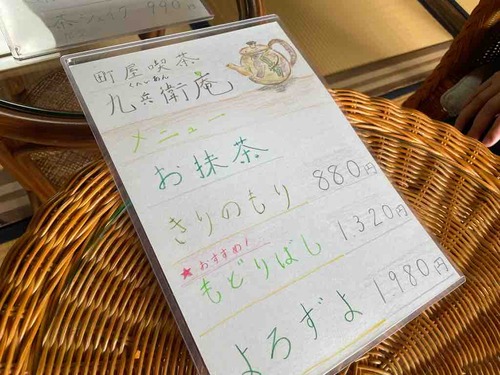 990円
町屋喫茶
くへいあん
九兵衛庵
メニュー
お抹茶
きりのもり 880円
★おすすめ!
もどりばし 1.320円
よろずよ 1.980円